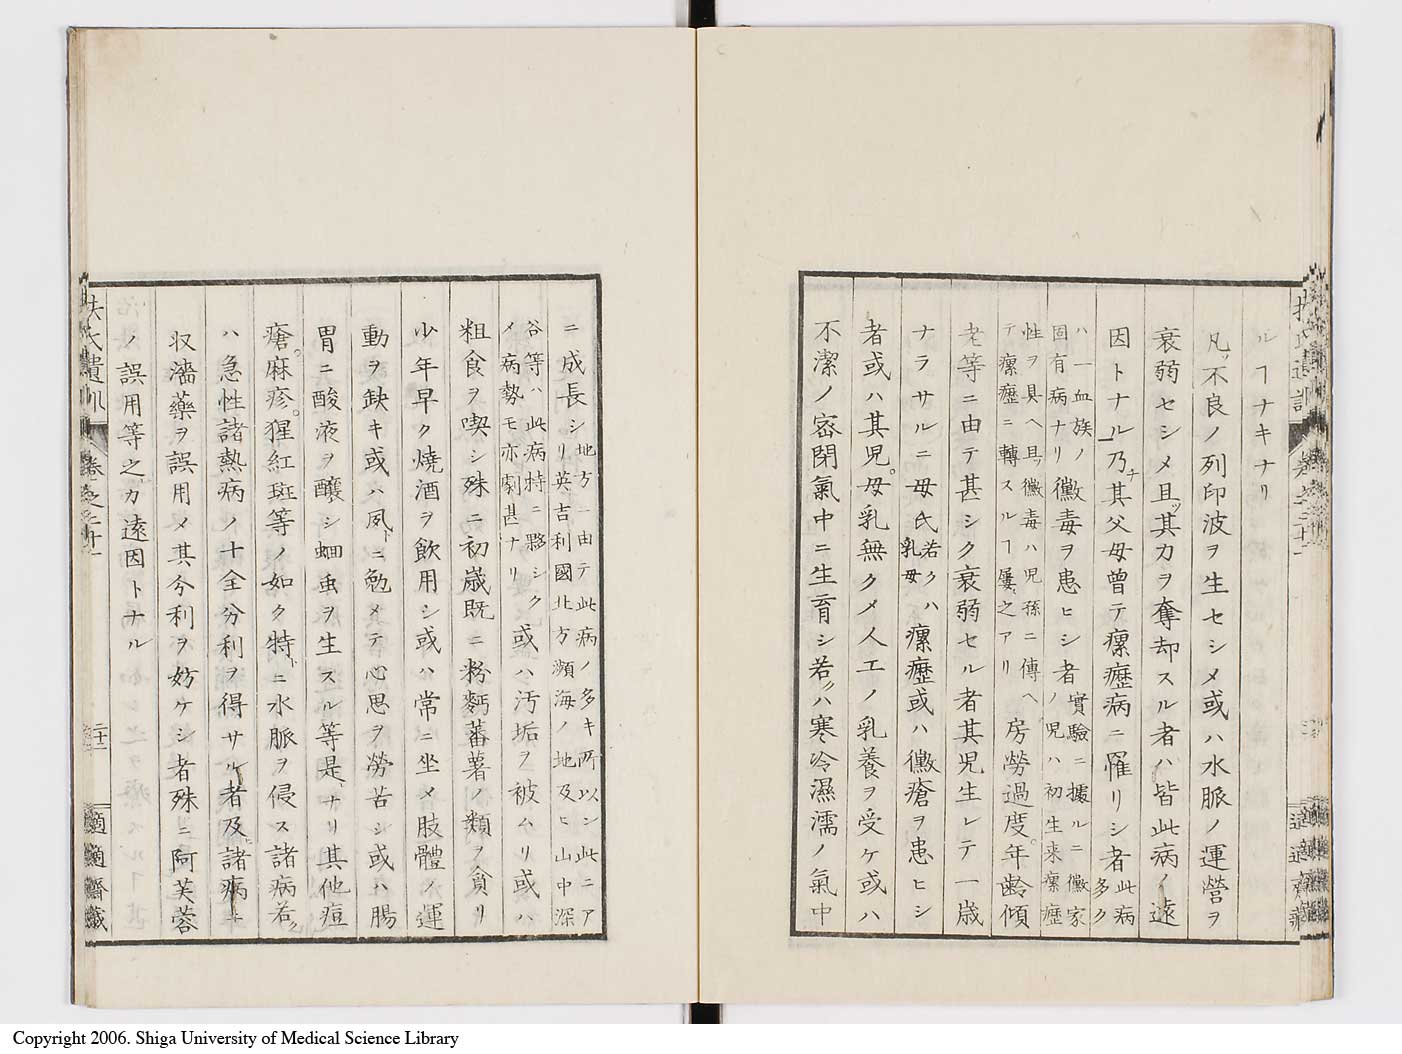 ルヿナキナリ
凡ッ不良ノ列印波ヲ生セシメ或ハ水脈ノ運營ヲ
衰弱セシメ且ッ其カヲ奪却スル者ハ皆此病ノ遠
因トナル乃チ其父母曾テ瘰癧病ニ罹リシ者此病多ク
ハ一血族ノ固有病ナリ黴毒ヲ患ヒシ者實驗ニ據ルニ黴家ノ児ハ初生来瘰癧
性ヲ具ヘ且ッ黴毒ハ児孫ニ傳ヘテ瘰癧ニ轉スルヿ屢〻之アリ房勞過度。年齢傾
老等ニ由テ甚シク衰弱セル者其児生レテ一歳
ナラサルニ母氏若クハ乳母瘰癧或ハ黴瘡ヲ患ヒシ
者或ハ其児。母乳無クメ人工ノ乳養ヲ受ケ或ハ
不潔ノ密閉氣中ニ生育シ若クハ寒冷濕濡ノ氣中
扶氏遺訓
適適齋藏
ニ成長シ地方ニ由テ此病ノ多キ所以ン此ニアリ英吉利國北方瀕海ノ地及ヒ山中深
谷等ハ此病特ニ夥シクメ病勢モ亦劇甚ナリ或ハ汚垢ヲ被ムリ或ハ
粗食ヲ喫シ殊ニ初歳既ニ粉麪蕃薯ノ類ヲ貪リ
少年早ク焼酒ヲ飲用シ或ハ常ニ坐メ肢體ノ運
動ヲ缺キ或ハ夙トニ勉メテ心思ヲ勞苦シ或ハ腸
胃ニ酸液ヲ釀シ蛔虫ヲ生スル等是ナリ其他痘
瘡。麻疹。猩紅斑等ノ如ク特トニ水脈ヲ侵ス諸病若ク
ハ急性諸熱病ノ十全分利ヲ得サル者及ヒ諸病ニ
収濇藥ヲ誤用メ其分利ヲ妨ケシ者殊ニ阿芙蓉
ノ誤用等之カ遠因トナル
扶氏遺訓
卷之二十一
二十二
適適齋藏